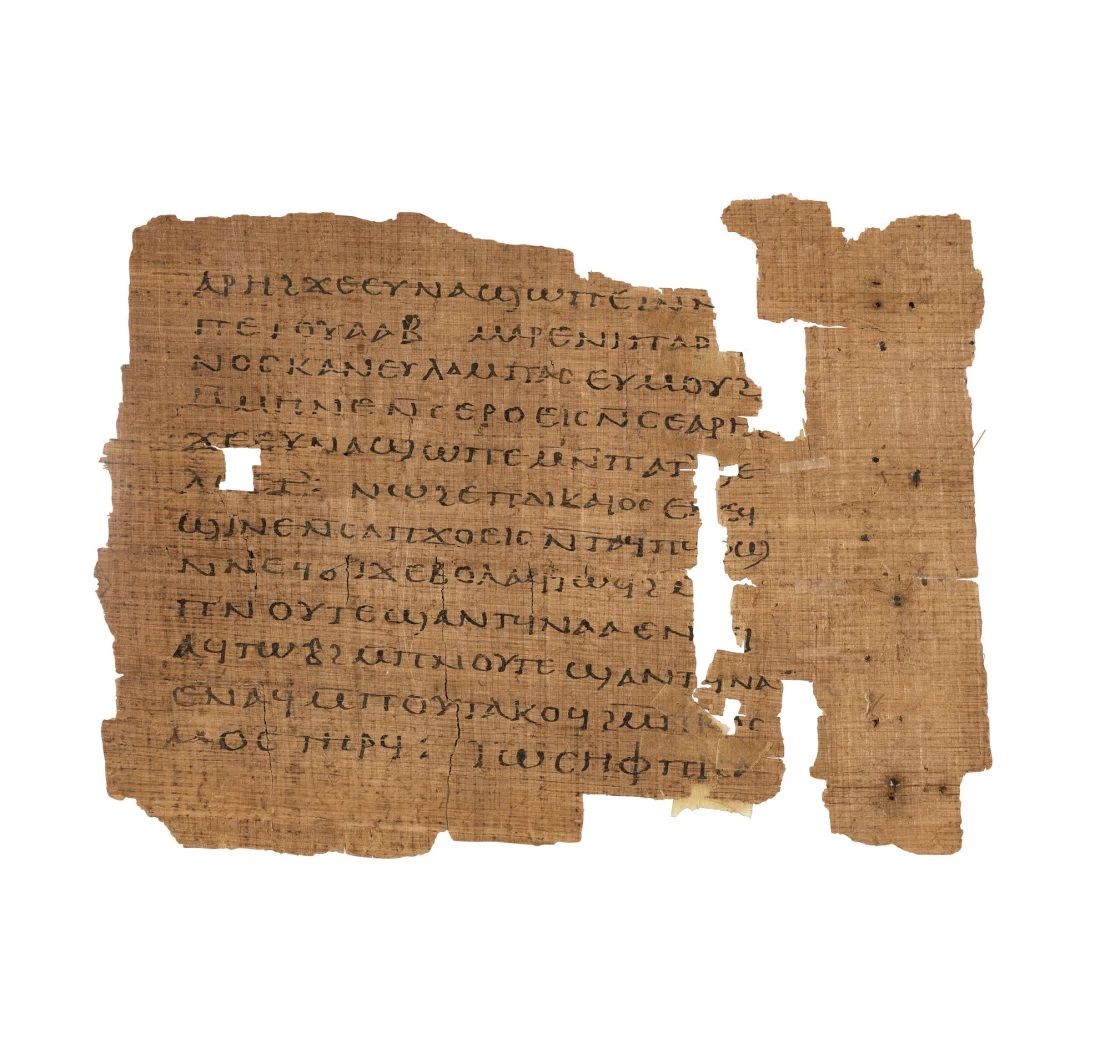 ⲁⲣⲏϩϫⲉⲉⲩⲛⲁϣⲱⲡⲉ
ⲡⲉⲧⲟⲩⲁⲁⲃ ⲙⲁⲣⲉⲛⲓⲡⲁⲣ
ⲛⲟⲥⲕⲁⲛⲉⲩⲗⲁⲙⲡⲁⲥⲉⲩⲙⲟⲩϩ
ⲙⲙⲏⲛⲉⲛⲥⲉⲣⲟⲉⲓⲥⲛⲥⲉⲁⲣⲏ
ϫⲉⲉⲩⲛⲁϣⲱⲡⲉⲙⲛⲡⲡⲁⲧ
ⲛⲱϩⲉⲡⲇⲓⲕⲁⲓⲟⲥ
ϣⲓⲛⲉⲛⲥⲁⲡϫⲟⲉⲓⲥⲛⲧⲁϥⲡ
ⲛⲛⲉϥϭⲓϫⲉⲃⲟⲗⲁϥⲧⲱϥϩ
ⲡⲛⲟⲩⲧⲉϣⲁⲛⲧϥⲛⲁⲁⲉⲛ
ⲁϥⲧⲱⲃϩⲙⲡⲛⲟⲩⲧⲉϣⲁⲛⲧϥⲛⲁ
ⲉⲛⲁϥⲙⲡⲟⲩⲧⲁⲕⲟϥϩⲙⲡⲕⲟⲥ
ⲙⲟⲥⲧⲏⲣϥ: ⲓⲱⲥⲏⲫⲡ